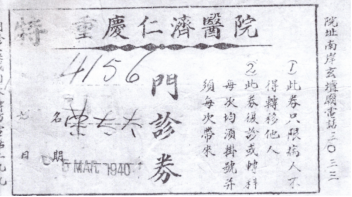 特
重慶仁濟醫院
4156
門診券
名
日期 5 MAR 1940
①此券只限病人不
得轉移他人
②此券復診或轉科
每次均須掛號并
須每次帶來
院址南岸玄壇廟電話三〇三三